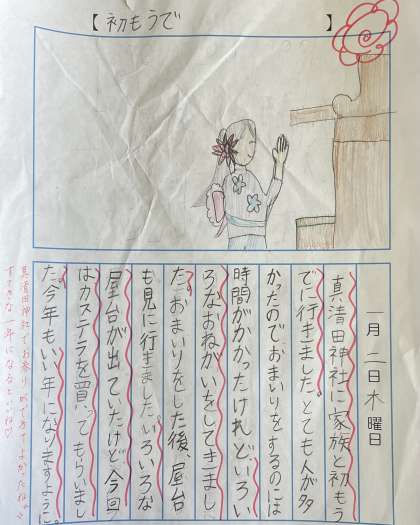 【初もうで】
一月二日木曜日
真清田神社に家族と初もう
でに行きました。とても人が多
かったので、おまいりをするのには
時間がかかったけれど、いろい
ろなおねがいをしてきまし
た。おまいりをした後、屋台
も見に行きました。いろいろな
屋台が出ていたけど、今回
はカステラを買ってもらいまし
た。今年もいい年になりますように。
真清田神社でお参り
すてきな一年になるといいね♡